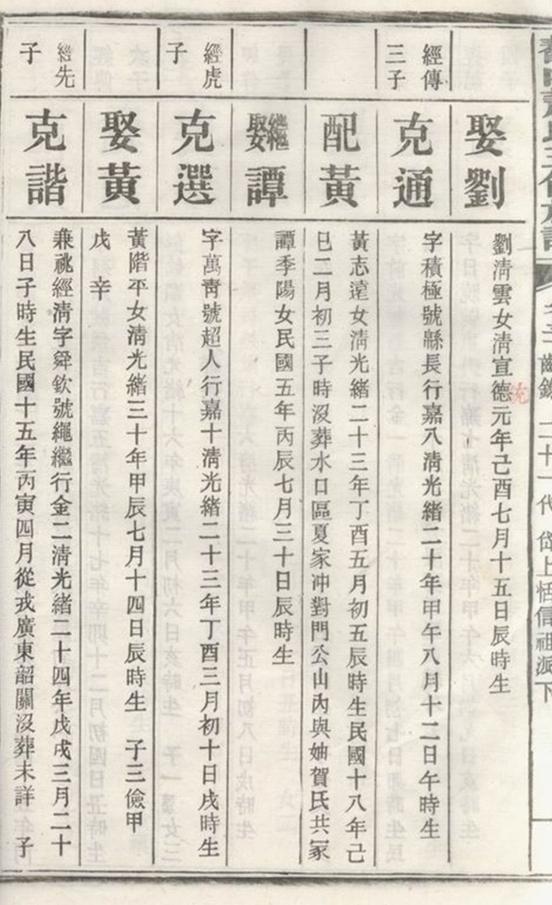 娶劉
劉清雲女清宣德元年己酉七月十五日辰時生
統
經傳
三子
克通
字積極號縣長行嘉八清光緒二十年甲午八月十二日午時生
配黃
黃志遠女清光緒二十三年丁酉五月初五辰時生民國十八年己
巳二月初三子時沒葬水口區夏家冲對門公山內與妯賀氏共冢
繼娶譚
譚季陽女民國五年丙辰七月三十日辰時生
經虎
子
克選
字萬青號超人行嘉十清光緒二十三年丁酉三月初十日戌時生
娶黃
黃階平女清光緒三十年甲辰七月十四日辰時生 子三儉甲
戊 辛
經先
子
克諧
兼祧經清字舜欽號繩繼行金二清光緒二十四年戊戌三月二十
八日子時生民國十五年丙寅四月從戎廣東韶關沒葬未詳 子
二十一代 岱上恬信祖派下